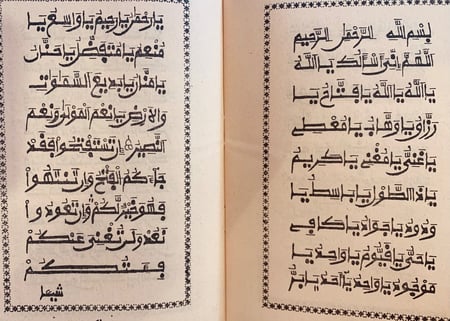 بسم الله الرحمن الرحيم
اللهم انى اسالك يا الله
يا الله يا الله يا فتاح يا
رزاق يا وهاب يا معطى
يا غنى يا مغنى يا كريم
يا ذا الطول يا باسط يا
ودود يا جواد يا كافى
يا حى يا قيوم يا واجد يا
موجود يا واحد يا احد يا بر
يا رحمن يا رحيم يا واسع يا
منعم يا متفضل يا حنان
يا منان يا بديع السموت
والارض يا نعم المولى ونعم
النصير ان تستفتحوا فقد
جاءكم الفتح وان تنتهوا
فهو خير لكم وان تعودوا
نعد ولن تغنى عنكم
فئتكم
شيئا